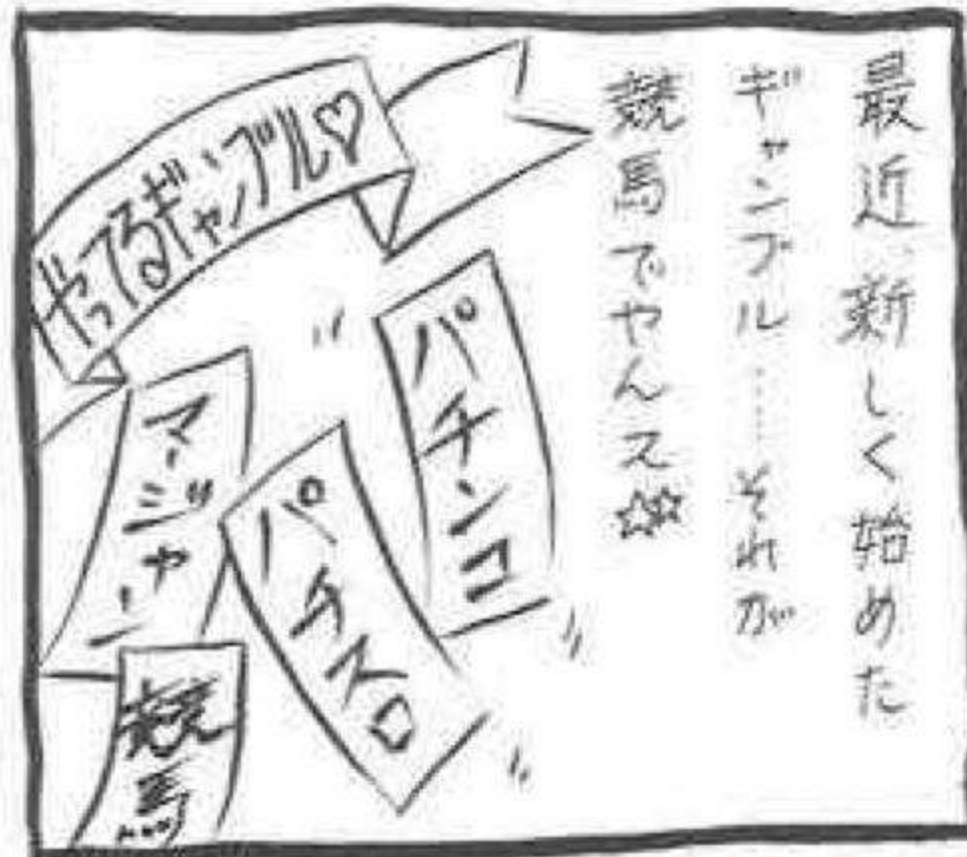 最近、新しく始めた
ギャンブル……それが
競馬でやんス☆☆
やってるギャンブル♡
パチンコ
パチスロ
マージャン
競馬